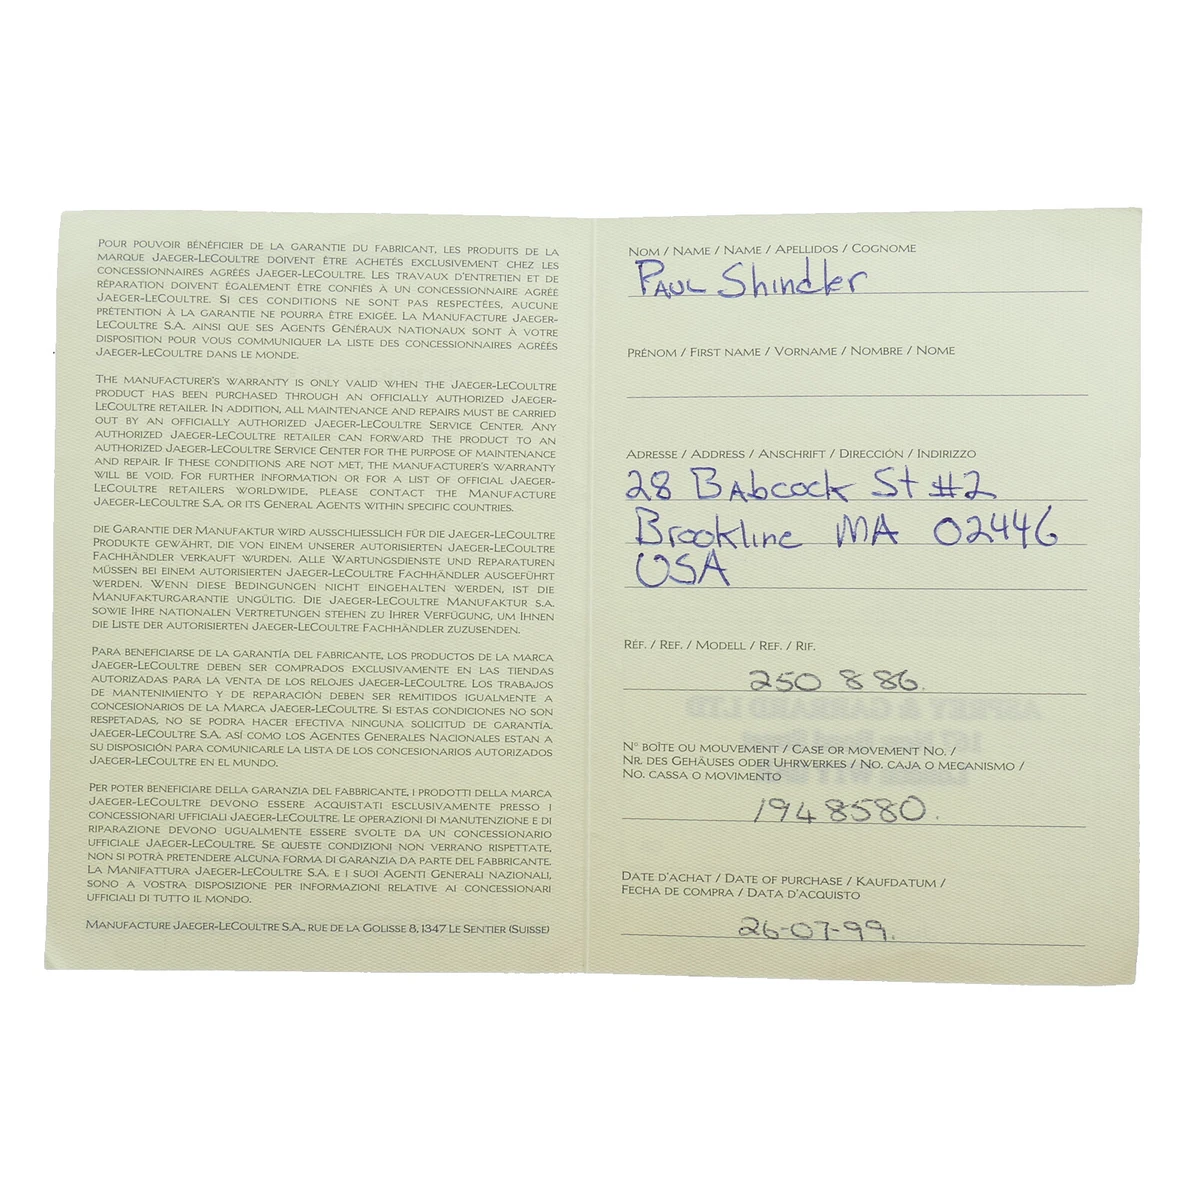 POUR POUVOIR BÉNÉFICIER DE LA GARANTIE DU FABRICANT, LES PRODUITS DE LA
MARQUE JAEGER-LECOULTRE DOIVENT ÊTRE ACHETÉS EXCLUSIVEMENT CHEZ LES
CONCESSIONNAIRES AGRÉÉS JAEGER-LECOULTRE. LES TRAVAUX D'ENTRETIEN ET DE
RÉPARATION DOIVENT ÉGALEMENT ÊTRE CONFIÉS À UN CONCESSIONNAIRE AGRÉÉ
JAEGER-LECOULTRE. SI CES CONDITIONS NE SONT PAS RESPECTÉES, AUCUNE
PRÉTENTION À LA GARANTIE NE POURRA ÊTRE EXIGÉE. LA MANUFACTURE JAEGER-
LECOULTRE S.A. AINSI QUE SES AGENTS GÉNÉRAUX NATIONAUX SONT À VOTRE
DISPOSITION POUR VOUS COMMUNIQUER LA LISTE DES CONCESSIONNAIRES AGRÉÉS
JAEGER-LECOULTRE DANS LE MONDE.
THE MANUFACTURER'S WARRANTY IS ONLY VALID WHEN THE JAEGER-LECOULTRE
PRODUCT HAS BEEN PURCHASED THROUGH AN OFFICIALLY AUTHORIZED JAEGER-
LECOULTRE RETAILER. IN ADDITION, ALL MAINTENANCE AND REPAIRS MUST BE CARRIED
OUT BY AN OFFICIALLY AUTHORIZED JAEGER-LECOULTRE SERVICE CENTER. ANY
AUTHORIZED JAEGER-LECOULTRE RETAILER CAN FORWARD THE PRODUCT TO AN
AUTHORIZED JAEGER-LECOULTRE SERVICE CENTER FOR THE PURPOSE OF MAINTENANCE
AND REPAIR. IF THESE CONDITIONS ARE NOT MET, THE MANUFACTURER'S WARRANTY
WILL BE VOID. FOR FURTHER INFORMATION OR FOR A LIST OF OFFICIAL JAEGER-
LECOULTRE RETAILERS WORLDWIDE, PLEASE CONTACT THE MANUFACTURE
JAEGER-LECOULTRE S.A. OR ITS GENERAL AGENTS WITHIN SPECIFIC COUNTRIES.
DIE GARANTIE DER MANUFAKTUR WIRD AUSSCHLIESSLICH FÜR DIE JAEGER-LECOULTRE
PRODUKTE GEWÄHRT, DIE VON EINEM UNSERER AUTORISIERTEN JAEGER-LECOULTRE
FACHHÄNDLER VERKAUFT WURDEN. ALLE WARTUNGSDIENSTE UND REPARATUREN
MÜSSEN BEI EINEM AUTORISIERTEN JAEGER-LECOULTRE FACHHÄNDLER AUSGEFÜHRT
WERDEN. WENN DIESE BEDINGUNGEN NICHT EINGEHALTEN WERDEN, IST DIE
MANUFAKTURGARANTIE UNGÜLTIG. DIE JAEGER-LECOULTRE MANUFAKTUR S.A.
SOWIE IHRE NATIONALEN VERTRETUNGEN STEHEN ZU IHRER VERFÜGUNG, UM IHNEN
DIE LISTE DER AUTORISIERTEN JAEGER-LECOULTRE FACHHÄNDLER ZUZUSENDEN.
PARA BENEFICIARSE DE LA GARANTÍA DEL FABRICANTE, LOS PRODUCTOS DE LA MARCA
JAEGER-LECOULTRE DEBEN SER COMPRADOS EXCLUSIVAMENTE EN LAS TIENDAS
AUTORIZADAS PARA LA VENTA DE LOS RELOJES JAEGER-LECOULTRE. LOS TRABAJOS
DE MANTENIMIENTO Y DE REPARACIÓN DEBEN SER REMITIDOS IGUALMENTE A
CONCESIONARIOS DE LA MARCA JAEGER-LECOULTRE. SI ESTAS CONDICIONES NO SON
RESPETADAS, NO SE PODRA HACER EFECTIVA NINGUNA SOLICITUD DE GARANTÍA.
JAEGER-LECOULTRE S.A. ASÍ COMO LOS AGENTES GENERALES NACIONALES ESTAN A
SU DISPOSICIÓN PARA COMUNICARLE LA LISTA DE LOS CONCESIONARIOS AUTORIZADOS
JAEGER-LECOULTRE EN EL MUNDO.
PER POTER BENEFICIARE DELLA GARANZIA DEL FABBRICANTE, I PRODOTTI DELLA MARCA
JAEGER-LECOULTRE DEVONO ESSERE ACQUISTATI ESCLUSIVAMENTE PRESSO I
CONCESSIONARI UFFICIALI JAEGER-LECOULTRE. LE OPERAZIONI DI MANUTENZIONE E DI
RIPARAZIONE DEVONO UGUALMENTE ESSERE SVOLTE DA UN CONCESSIONARIO
UFFICIALE JAEGER-LECOULTRE. SE QUESTE CONDIZIONI NON VERRANO RISPETTATE,
NON SI POTRÀ PRETENDERE ALCUNA FORMA DI GARANZIA DA PARTE DEL FABBRICANTE.
LA MANIFATTURA JAEGER-LECOULTRE S.A. E I SUOI AGENTI GENERALI NAZIONALI,
SONO A VOSTRA DISPOSIZIONE PER INFORMAZIONI RELATIVE AI CONCESSIONARI
UFFICIALI DI TUTTO IL MONDO.
MANUFACTURE JAEGER-LECOULTRE S.A., RUE DE LA GOLISSE 8, 1347 LE SENTIER (SUISSE)
NOM / NAME / NAME / APELLIDOS / COGNOME
PAUL Shindler
PRÉNOM / FIRST NAME / VORNAME / NOMBRE / NOME
ADRESSE / ADDRESS / ANSCHRIFT / DIRECCIÓN / INDIRIZZO
28 BAbcock St #2
Brookline MA 02446
USA
RÉF. / REF. / MODELL / REF. / RIF.
250 8 86.
N° BOÎTE OU MOUVEMENT / CASE OR MOVEMENT NO. /
NR. DES GEHÄUSES ODER UHRWERKES / NO. CAJA O MECANISMO /
NO. CASSA O MOVIMENTO
1948580.
DATE D'ACHAT / DATE OF PURCHASE / KAUFDATUM /
FECHA DE COMPRA / DATA D'ACQUISTO
26-07-99.